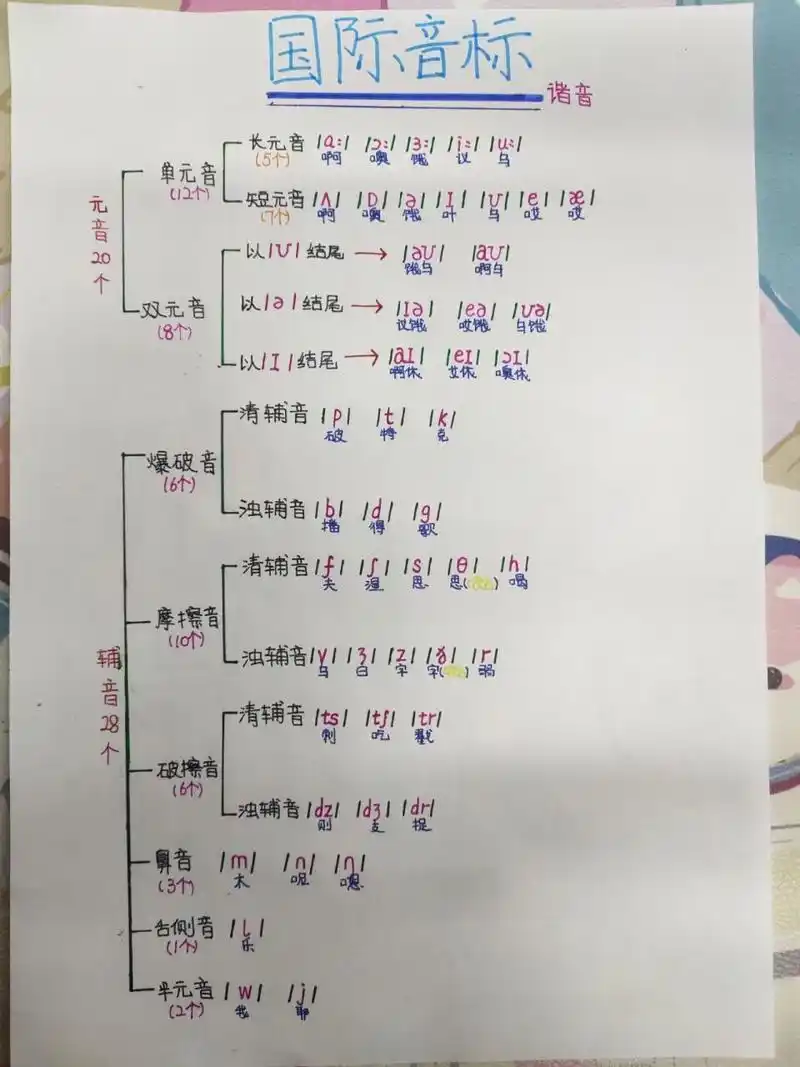 国际音标
谐音
元音20个
单元音
(12个)
长元音 /ɑ:/ /ɔ:/ /ɜ:/ /i:/ /u:/
(5个) 啊 噢 饿 议 乌
短元音 /ʌ/ /ɒ/ /ə/ /ɪ/ /ʊ/ /e/ /æ/
(7个) 啊 噢 饿 叶 乌 哎 哎
双元音
(8个)
以/ʊ/结尾 → /əʊ/ /aʊ/
饿乌 啊乌
以/ə/结尾 → /ɪə/ /eə/ /ʊə/
议饿 哎饿 乌饿
以/ɪ/结尾 → /aɪ/ /eɪ/ /ɔɪ/
啊依 艾依 噢依
辅音28个
爆破音
(6个)
清辅音 /p/ /t/ /k/
破 特 克
浊辅音 /b/ /d/ /g/
播 得 歌
摩擦音
(10个)
清辅音 /f/ /ʃ/ /s/ /θ/ /h/
夫 湿 思 思( ) 喝
浊辅音 /v/ /ʒ/ /z/ /ð/ /r/
乌 日 字 字( ) 弱
破擦音
(6个)
清辅音 /ts/ /tʃ/ /tr/
刺 吃 戳
浊辅音 /dz/ /dʒ/ /dr/
则 支 捉
鼻音 /m/ /n/ /η/
(3个) 木 呢 嗯
舌侧音 /l/
(1个) 乐
半元音 /w/ /j/
(2个) 我 耶